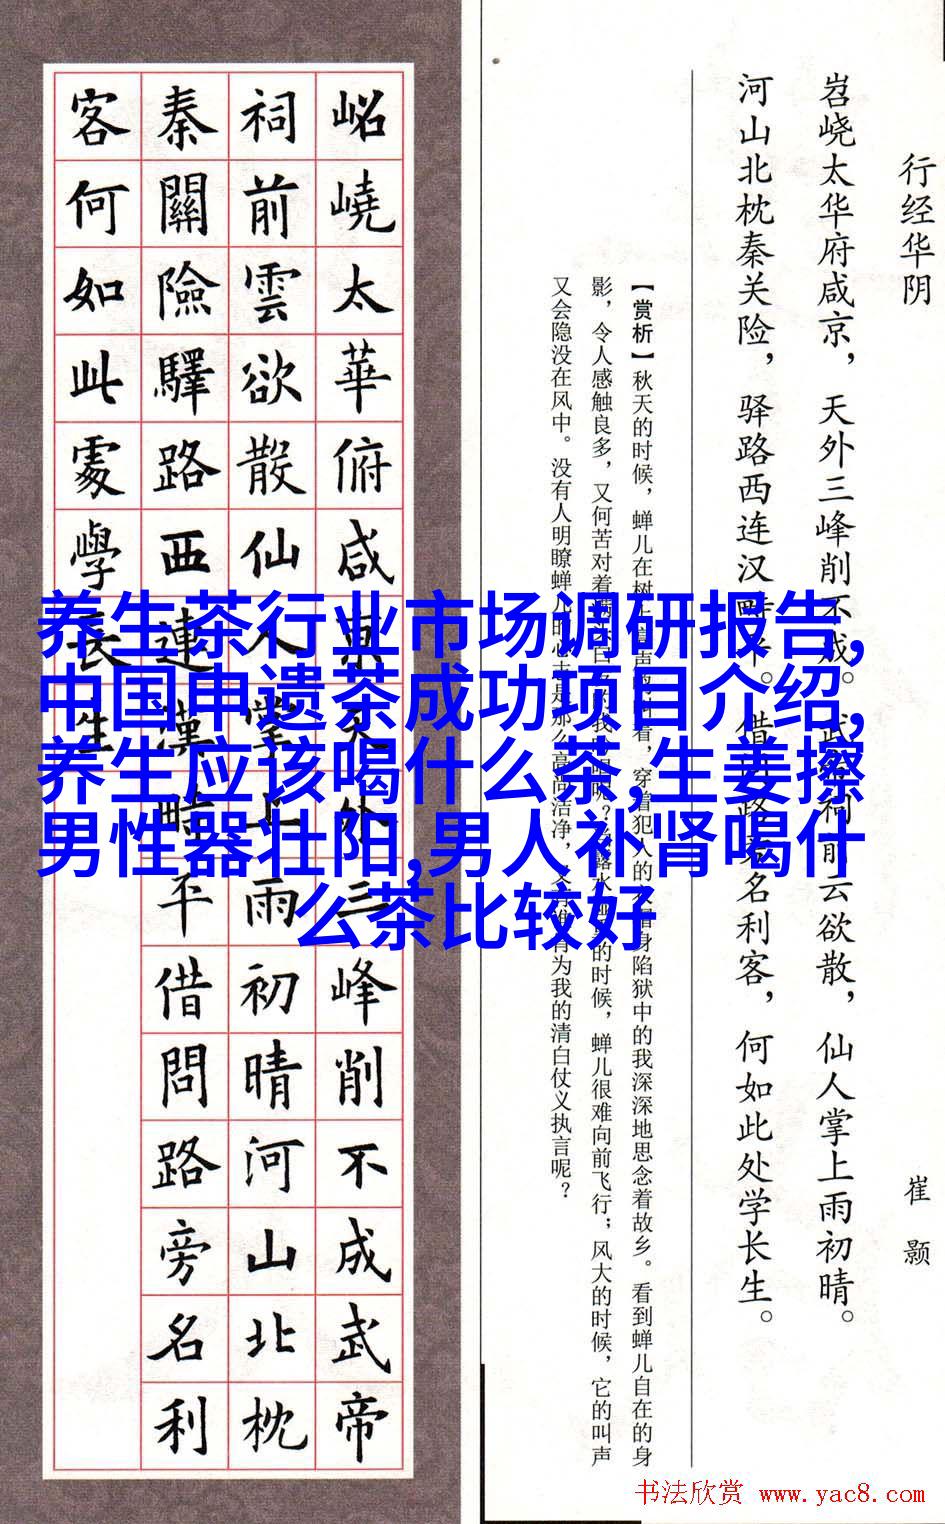 行经华阴
崔颢
岧峣太华府咸京，天外三峰削不成。武帝祠前云欲散，仙人掌上雨初晴。
河山北枕秦关险，驿路西连汉畤平。借问路旁名利客，何如此处学长生。
【赏析】秋天的时候，蝉儿在树上高声鸣叫着，穿着犯人的衣帽身陷狱中的我深深地思念着故乡。看到蝉儿自在的身
影，令人感触良多，又何苦对着满头白发的我吟唱呢？露水重的时候，蝉儿很难向前飞行；风大的时候，它的叫声
又会隐没在风中。没有人明瞭蝉儿的心志是那么高尚洁净，又有谁肯为我的清白仗义执言呢？
岹嶢太華俯咸京天外三峰削不成武帝
祠前雲欲散仙人掌上雨初晴河山北枕
秦關險驛路西連漢畤平借問路旁名利
客何如此處學長生
养生茶行业市场调研报告,
中国申遗茶成功项目介绍,
养生应该喝什么茶,生姜擦
男性器壮阳,男人补肾喝什
么茶比较好
书法欣赏 www.yac8.com